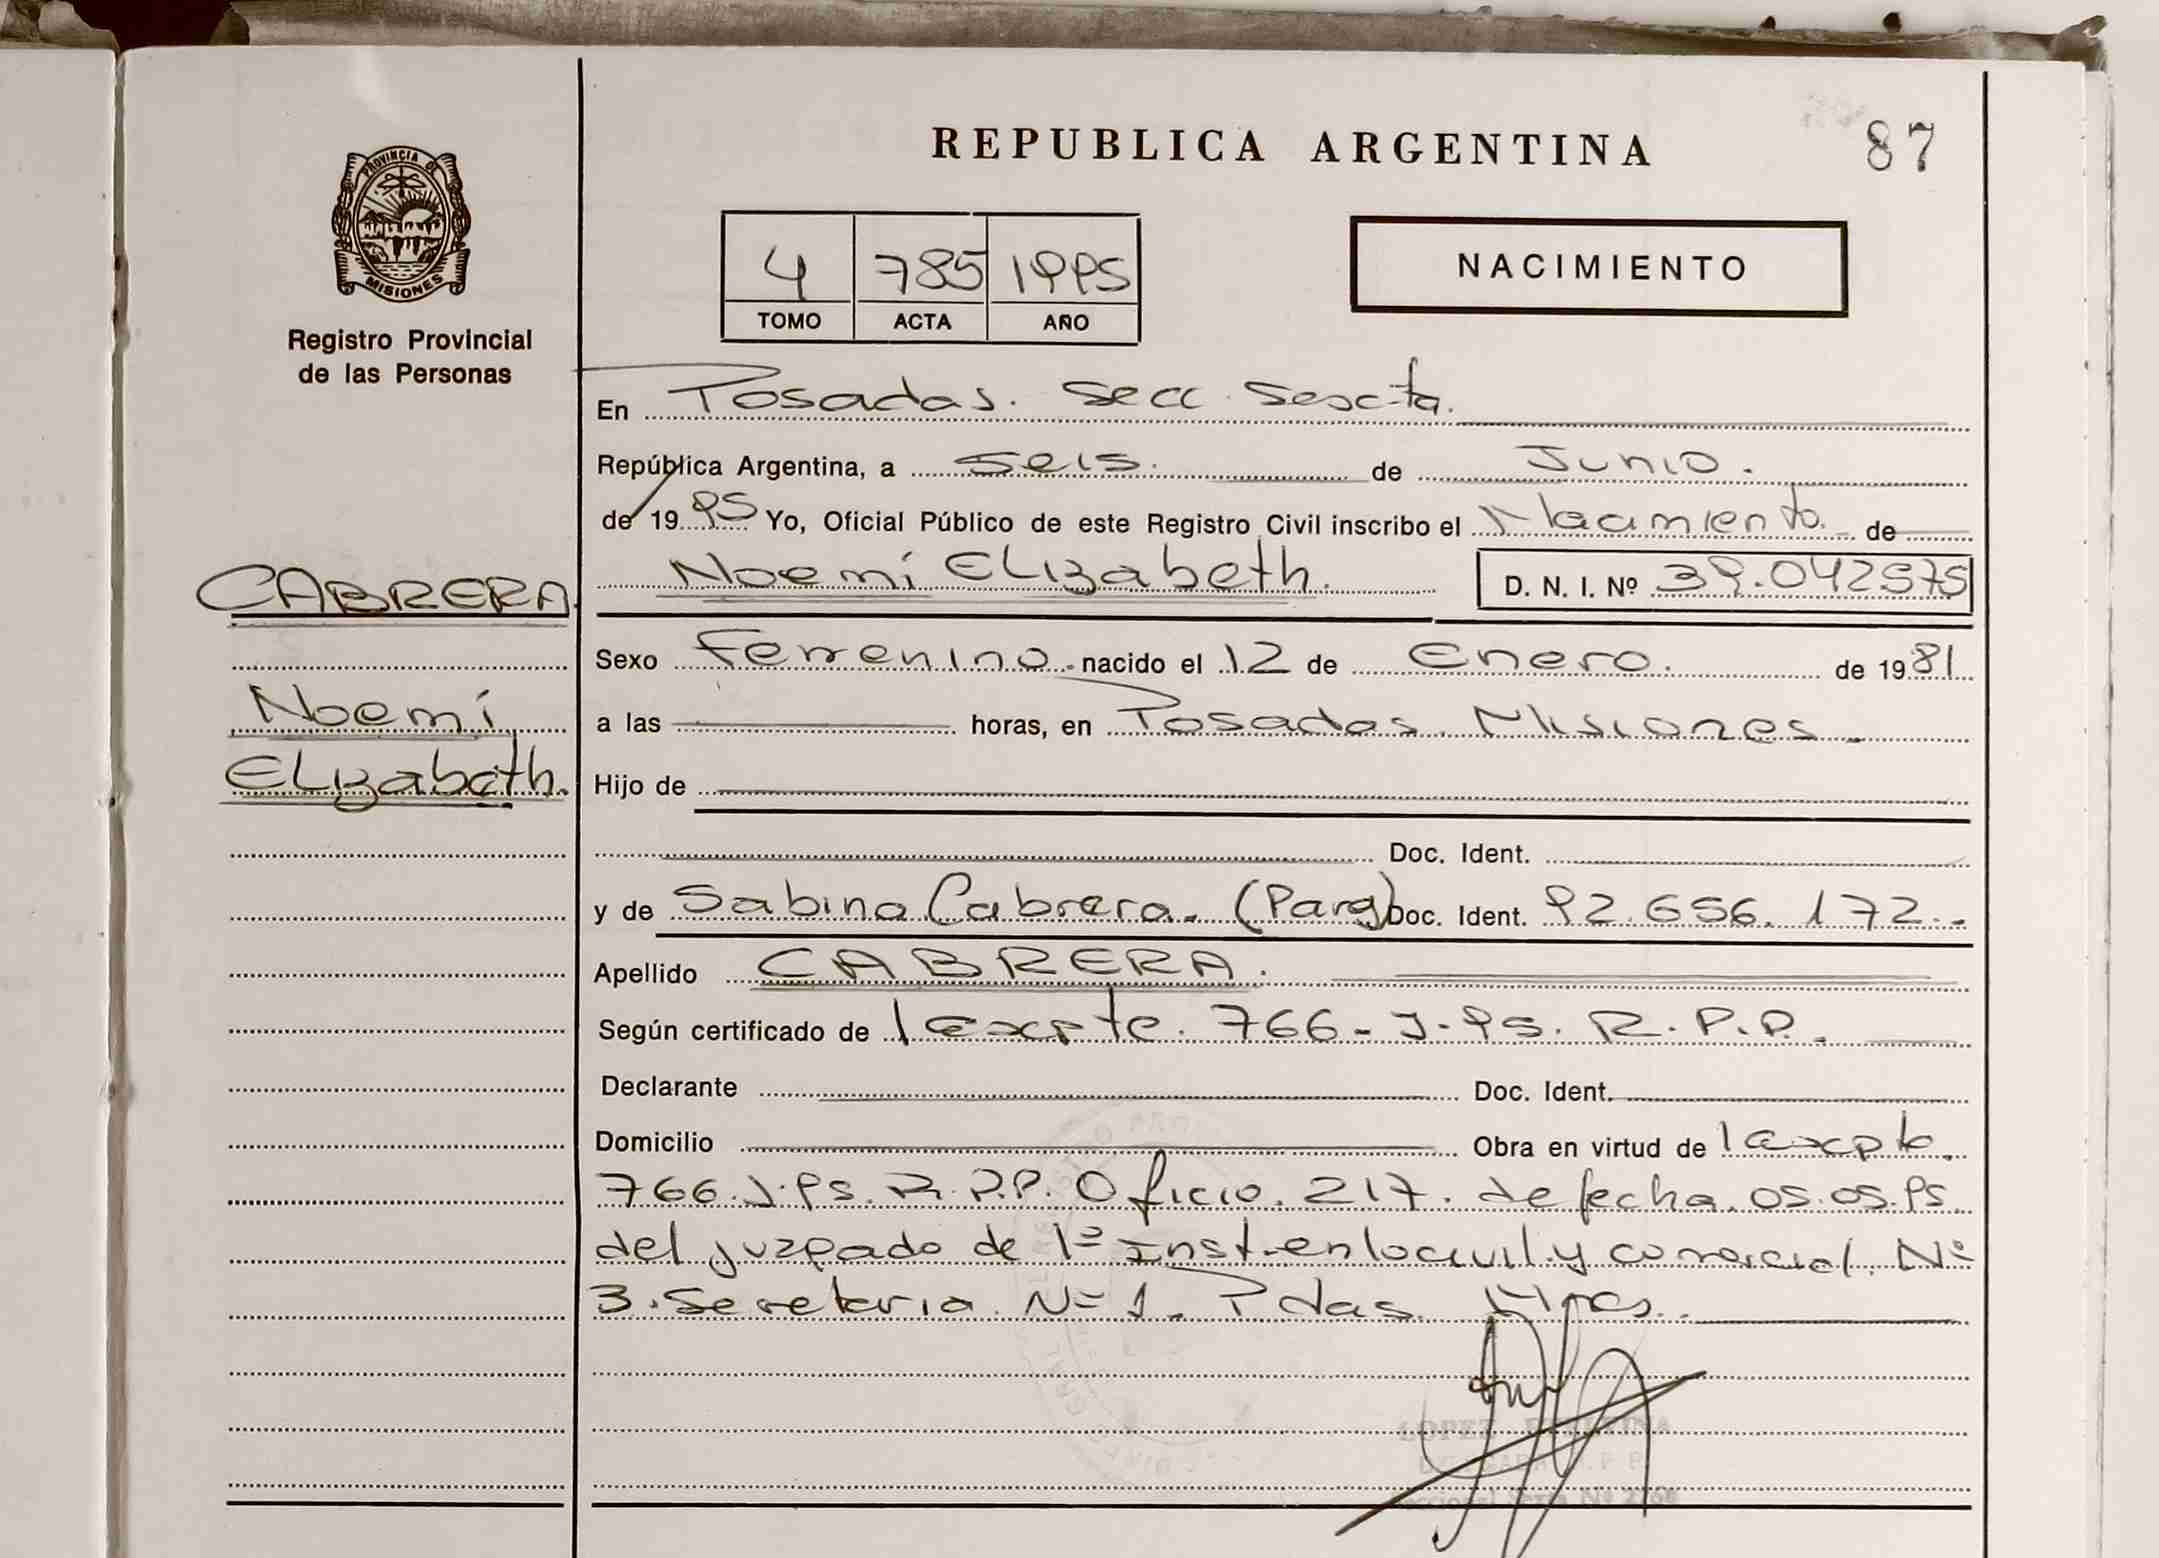 REPUBLICA ARGENTINA
87
PROVINCIA DE
MISIONES
Registro Provincial
de las Personas
4 785 1995
TOMO ACTA AÑO
NACIMIENTO
En Posadas. Secc. Sexta.
República Argentina, a seis. de Junio.
de 19 95 Yo, Oficial Público de este Registro Civil inscribo el Nacimiento. de
CABRERA
Noemí Elizabeth. D. N. I. Nº 39.042575
Sexo Femenino. nacido el 12 de Enero. de 19 81
Noemí
a las horas, en Posadas. Misiones.
Elizabeth.
Hijo de
Doc. Ident.
y de Sabina Cabrera. (Parg) Doc. Ident. 92.656.172.
Apellido CABRERA.
Según certificado de / expte. 766-J-95. R.P.P.
Declarante Doc. Ident.
Domicilio Obra en virtud de / expte.
766.J.95.R.P.P. Oficio. 217. de fecha. 05.05.95
del juzgado de 1º Inst. en lo civil y comercial. Nº
3. Secretaria Nº 1. Pdas. Mnes.
LOPEZ